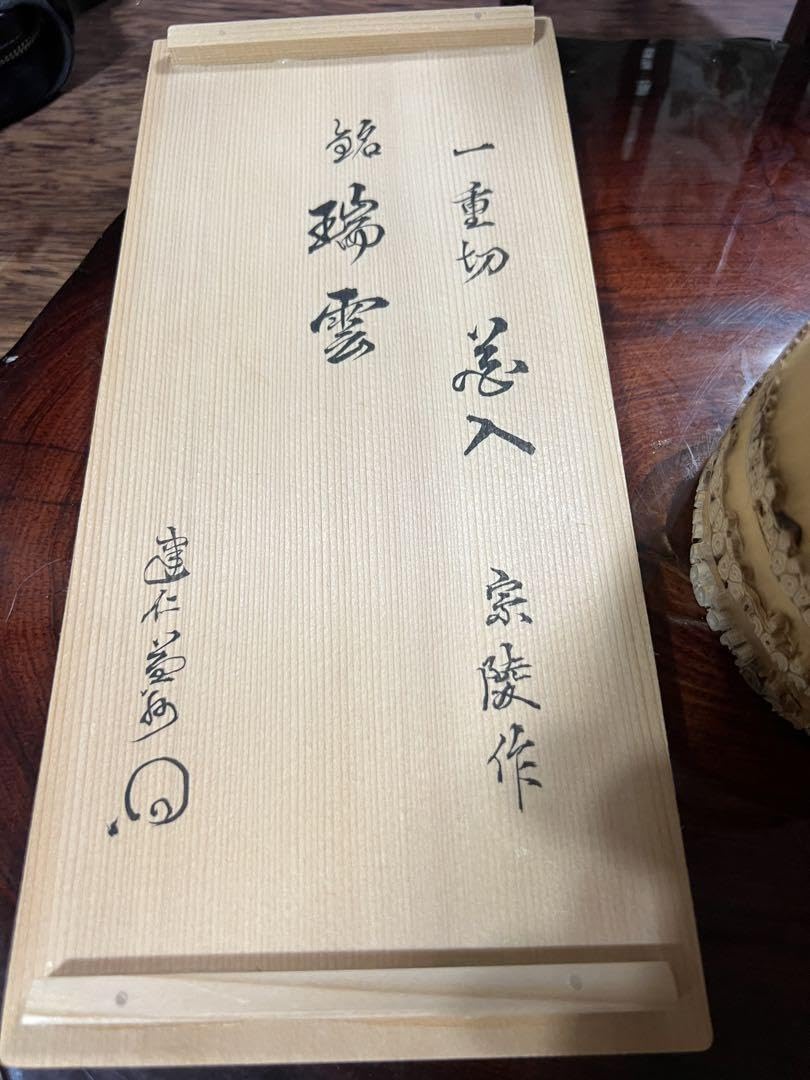 一重切 花入 宗陵作
銘 瑞雲
建仁 益州